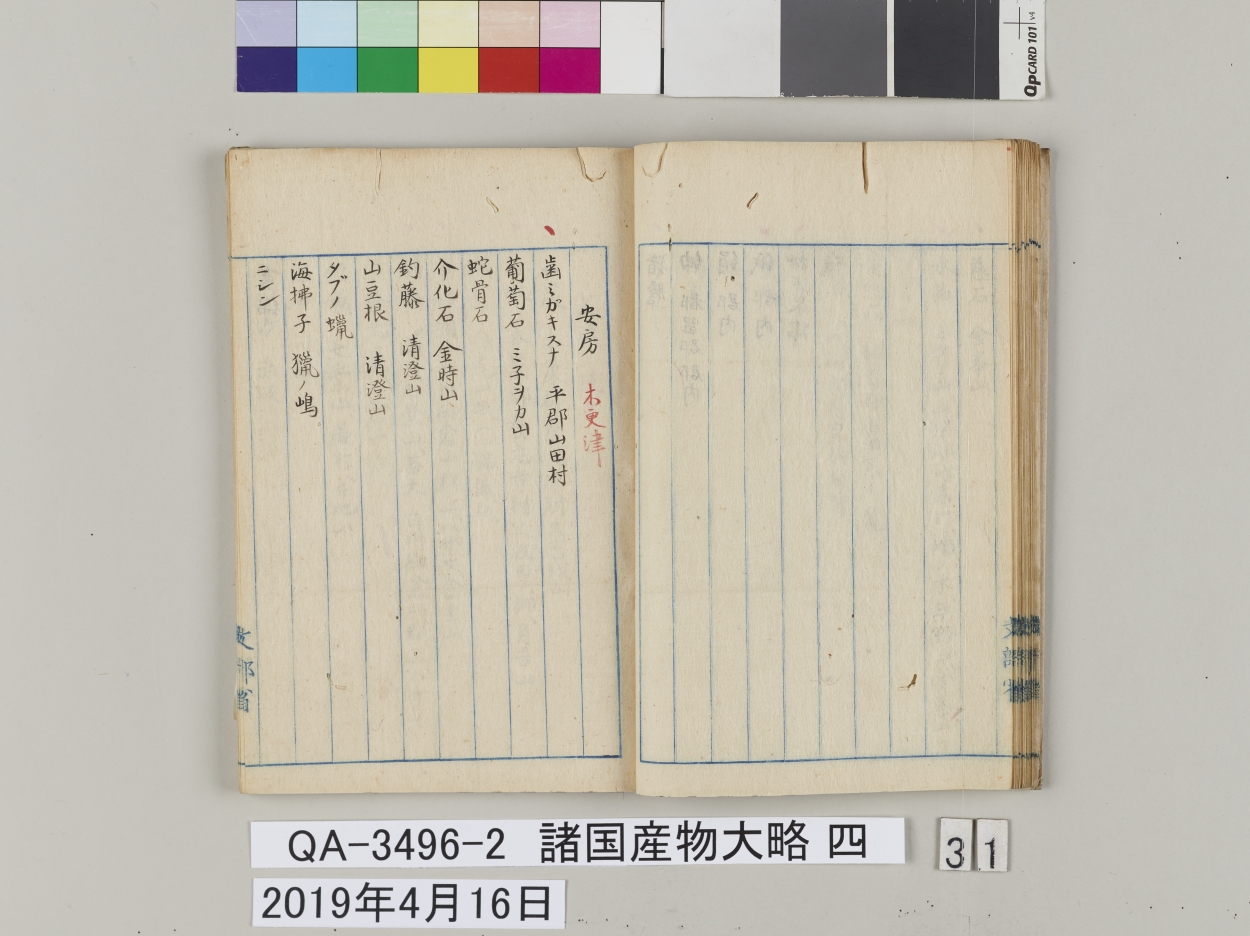 安房 木更津
歯ミガキスナ 平郡山田村
葡萄石 ミ子ヲカ山
蛇骨石
介化石 金時山
釣藤 清澄山
山豆根 清澄山
タブノ蝋
海拂子 獵ノ嶋
ニシン
文部省
QA-3496-2 諸国産物大略 四
31
2019年4月16日
QpCARD 101 v4